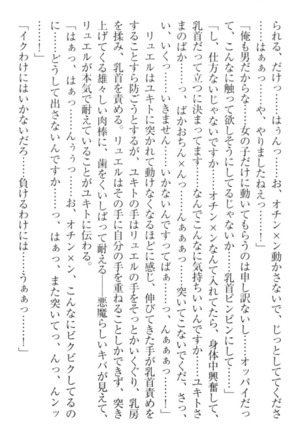 られる、だけ……はぁんっ……お、オチン×ン動かさないで、じっとしててくださ
……はぁぁっ……や、やりましたねえっ……！」
「俺も男だからな……女の子だけに動いてもらうのは申し訳ない！……オッパイだっ
て、こんなに触って欲しそうにしてるじゃないか……乳首ビンビンにして……」
「し、仕方ないじゃないですか……オチン×ンなんて入れてたら、身体中興奮して、
乳首だって立つに決まってます……なんでこんなに気持ちいいんですかっ、ユキトさ
まのばか……っ、ばかおちん×んっ……んぁぁっ……突いてこないでくだ、さっ、
い、いくっ……いきません……いかないんですってばぁ……っ、んぅぅっ……！」
　リュエルはユキトに突かれて動けなくなるほどに感じ、伸びてきた手が乳首責めを
することすら防ごうとするが、ユキトの手はリュエルの手をそっとかいくぐり、乳房
を揉み、乳首を責める。リュエルはその手に自分の手を重ねることしかできず、突き
上げてくる雄々しい肉棒に、歯をくいしばって耐える――悪魔らしいキバが見えて、
リュエルが本気で耐えていることがユキトに伝わる。
「はぁっ、はぁっ……んぅぅっ……お、オチン×ン、こんなにビクビクしてるの
に……どうして出さないんですか……っ、はぁっ、また突いてっ、んっ、んンッ
っ……！」
「イクわけにはいかないだろ……負けるわけには……うぁぁっ……！」